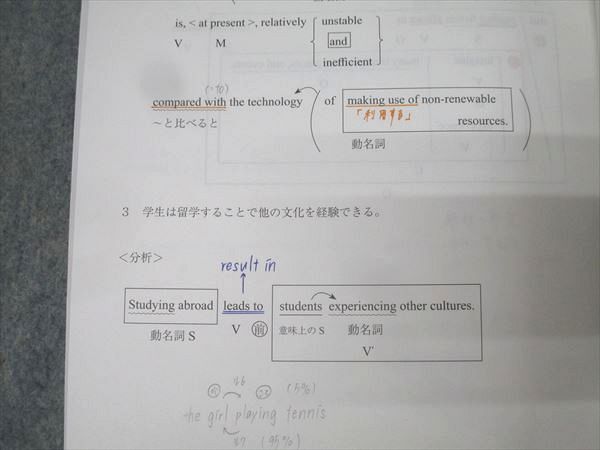 is, < at present >, relatively
unstable
and
inefficient
V M
(=to)
compared with the technology
of making use of non-renewable
resources.
～と比べると
「利用する」
動名詞
3 学生は留学することで他の文化を経験できる。
＜分析＞
result in
Studying abroad leads to students experiencing other cultures.
動名詞 S V 前 意味上の S 動名詞
V'
(5%)
the girl playing tennis
(95%)